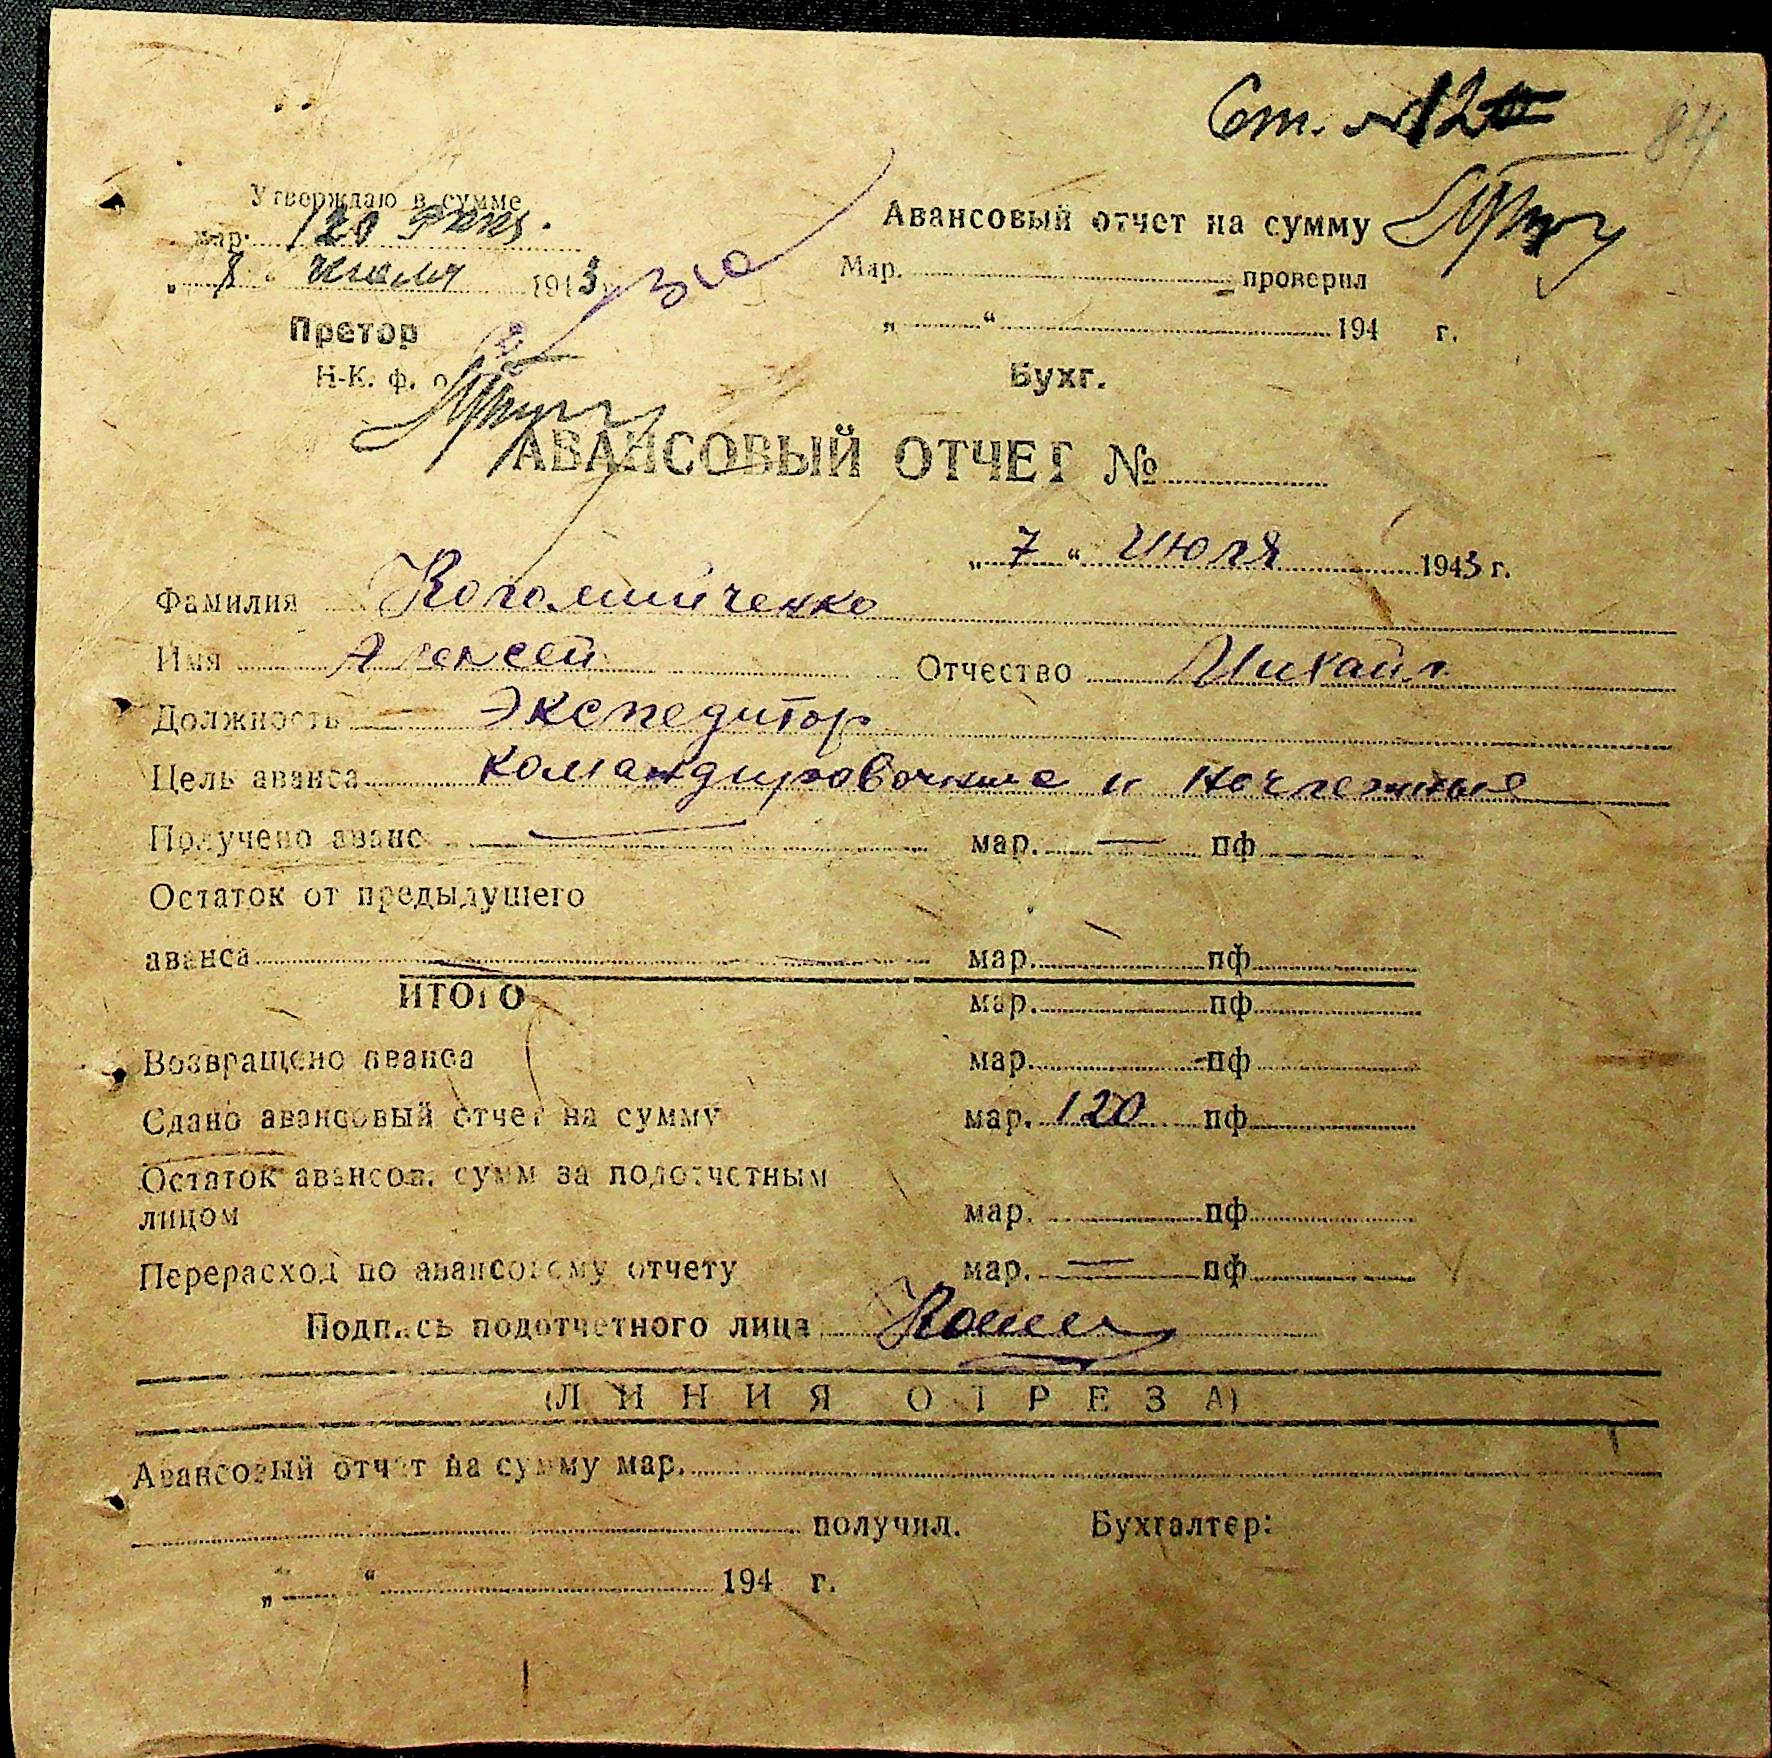 Ст. №12
84
Утверждаю в сумме
мар. 120
„ 8 “ июля 1943 г.
Претор
Н-К. ф. о
Авансовый отчет на сумму
Мар. проверил
„ “ 194 г.
Бухг.
АВАНСОВЫЙ ОТЧЕТ №
„ 7 “ Июля 1943 г.
Фамилия Коломийченко
Имя Алексей Отчество Михайл
Должность Экспедитор
Цель аванса командировочные и ночлежные
Получено аванс мар. — пф.
Остаток от предыдущего
аванса мар. пф.
ИТОГО мар. пф.
Возвращено аванса мар. пф.
Сдано авансовый отчет на сумму мар. 120 пф.
Остаток авансов. сумм за подотчетным
лицом мар. пф.
Перерасход по авансовому отчету мар. — пф.
Подпись подотчетного лица
(ЛИНИЯ ОТРЕЗА)
Авансовый отчет на сумму мар.
получил. Бухгалтер:
„ “ 194 г.